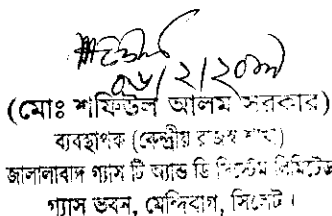 ০৬/২/২০১৭
(মোঃ শফিউল আলম সরকার)
ব্যবস্থাপক (কেন্দ্রীয় রাজস্ব শাখা)
জালালাবাদ গ্যাস টি অ্যান্ড ডি সিস্টেম লিমিটেড
গ্যাস ভবন, মেন্দিবাগ, সিলেট।